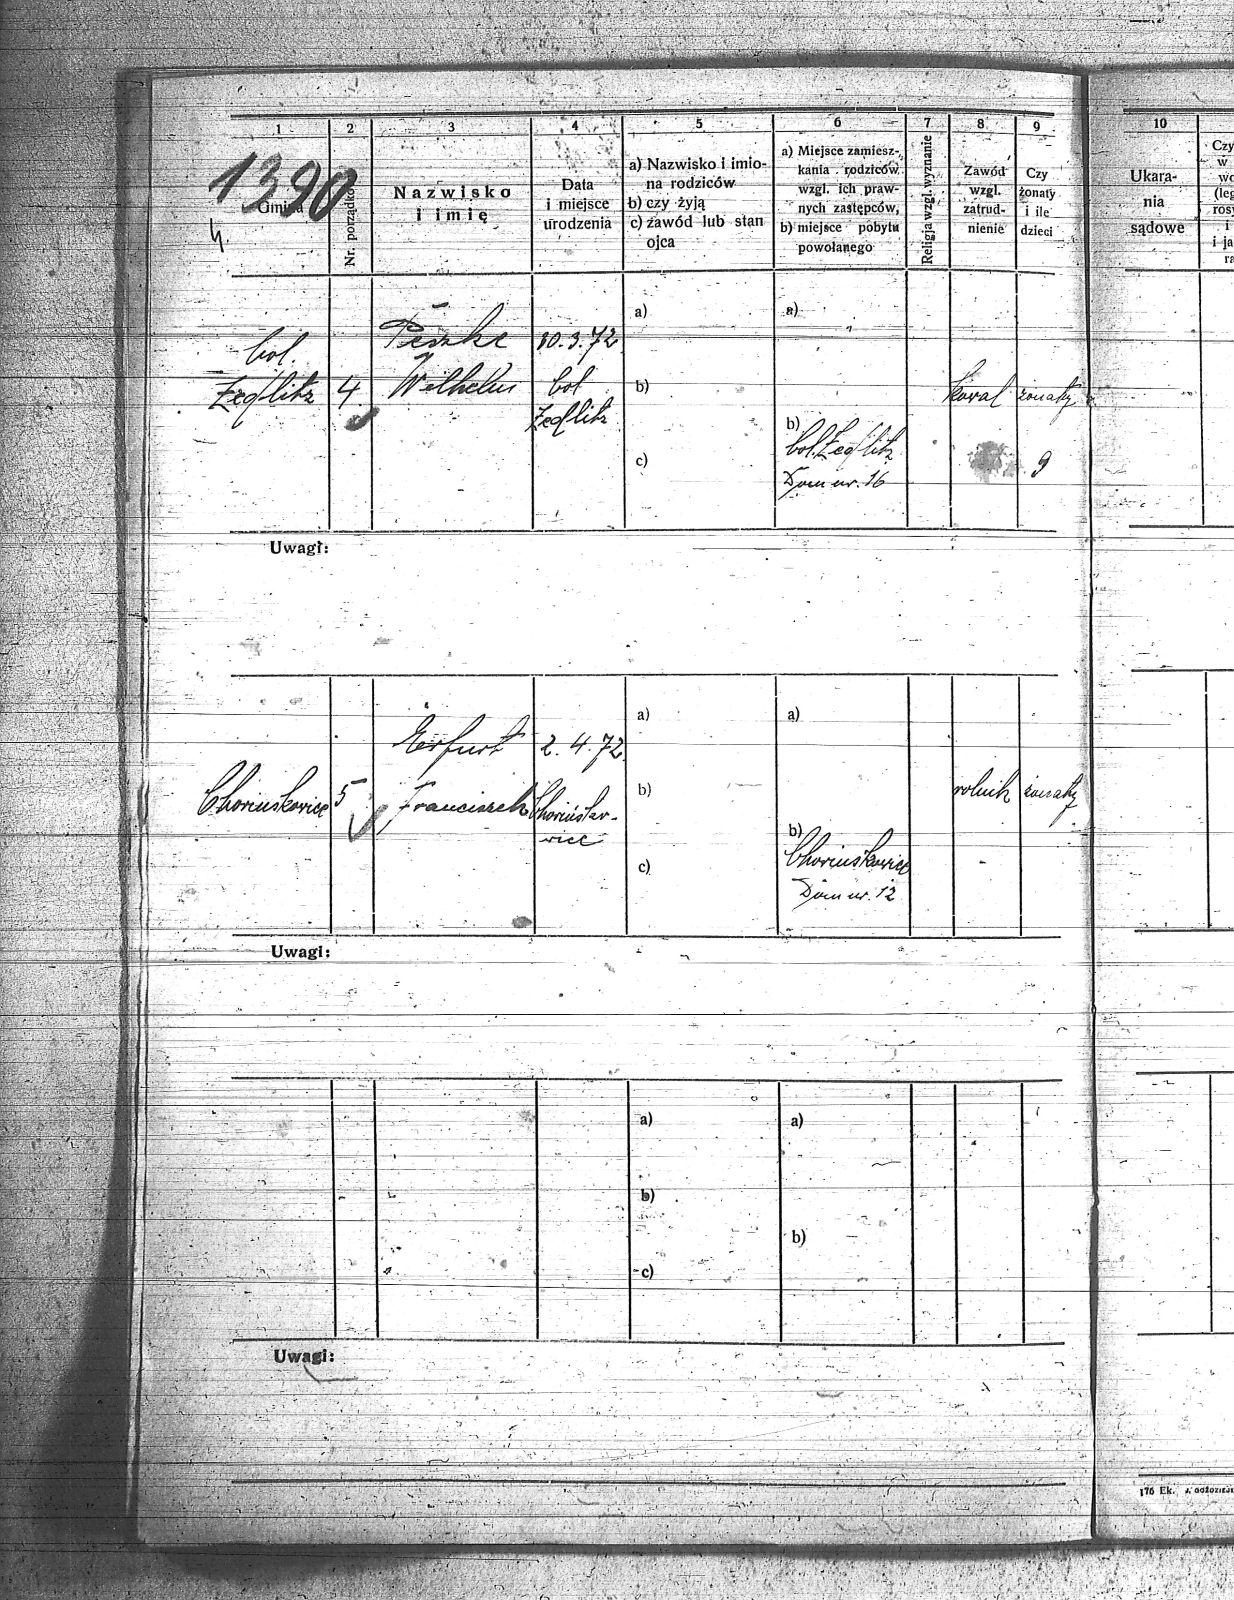 1 2 3 4 5 6 7 8 9 10
1390
Gmina
Nr. porządko
Nazwisko
i imię
Data
i miejsce
urodzenia
a) Nazwisko i imio-
na rodziców
b) czy żyją
c) zawód lub stan
ojca
a) Miejsce zamiesz-
kania rodziców
wzgl. ich praw-
nych zastępców,
b) miejsce pobytu
powołanego
Religja wzgl. wyznanie
Zawód
wzgl.
zatrud-
nienie
Czy
żonaty
i ile
dzieci
Ukara-
nia
sądowe
Czy
w
(leg
i
i ja
ra
Kol.
Zedlitz
4
Peszke
Wilhelm
10.3.72
Kol
Zedlitz
a)
b)
c)
a)
b)
Kol. Zedlitz
Dom nr. 16
Kowal
żonaty
9
Uwagi:
5
Erfurt
Franciszek
2.4.72
a)
b)
c)
a)
b)
Dom nr. 12
rolnik
żonaty
Uwagi:
a)
b)
c)
a)
b)
Uwagi:
176 Ek.